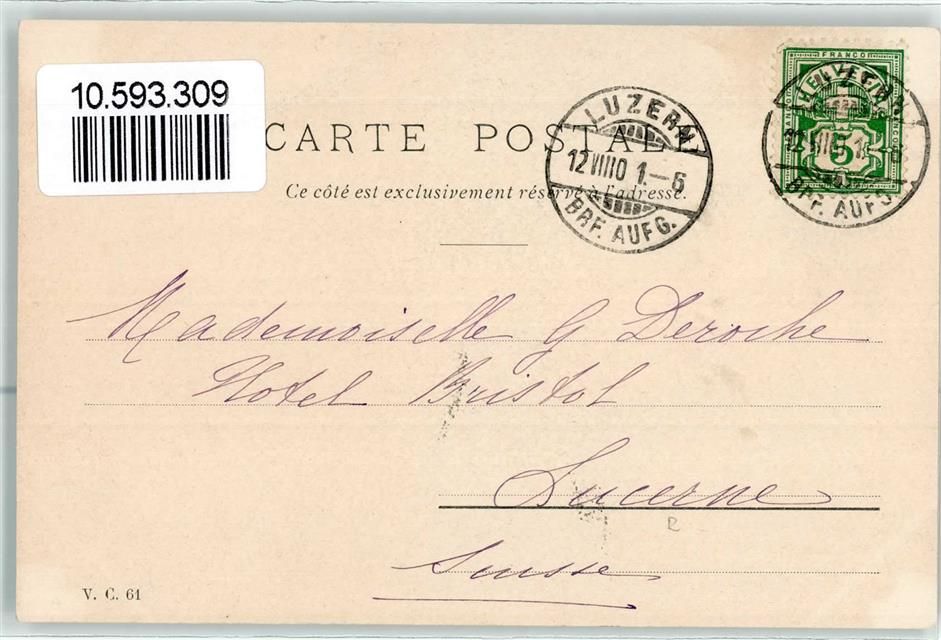 10.593.309
CARTE POSTALE
Ce côté est exclusivement réservé à l'adresse.
LUZERN
12 VIII 0 1-6
BRF. AUFG.
FRANCO
HELVETIA
FRANCO
FRANCO
5
LUZERN
BRF. AUFG.
Mademoiselle G Deroche
Hotel Bristol
Lucerne
Suisse
V. C. 61